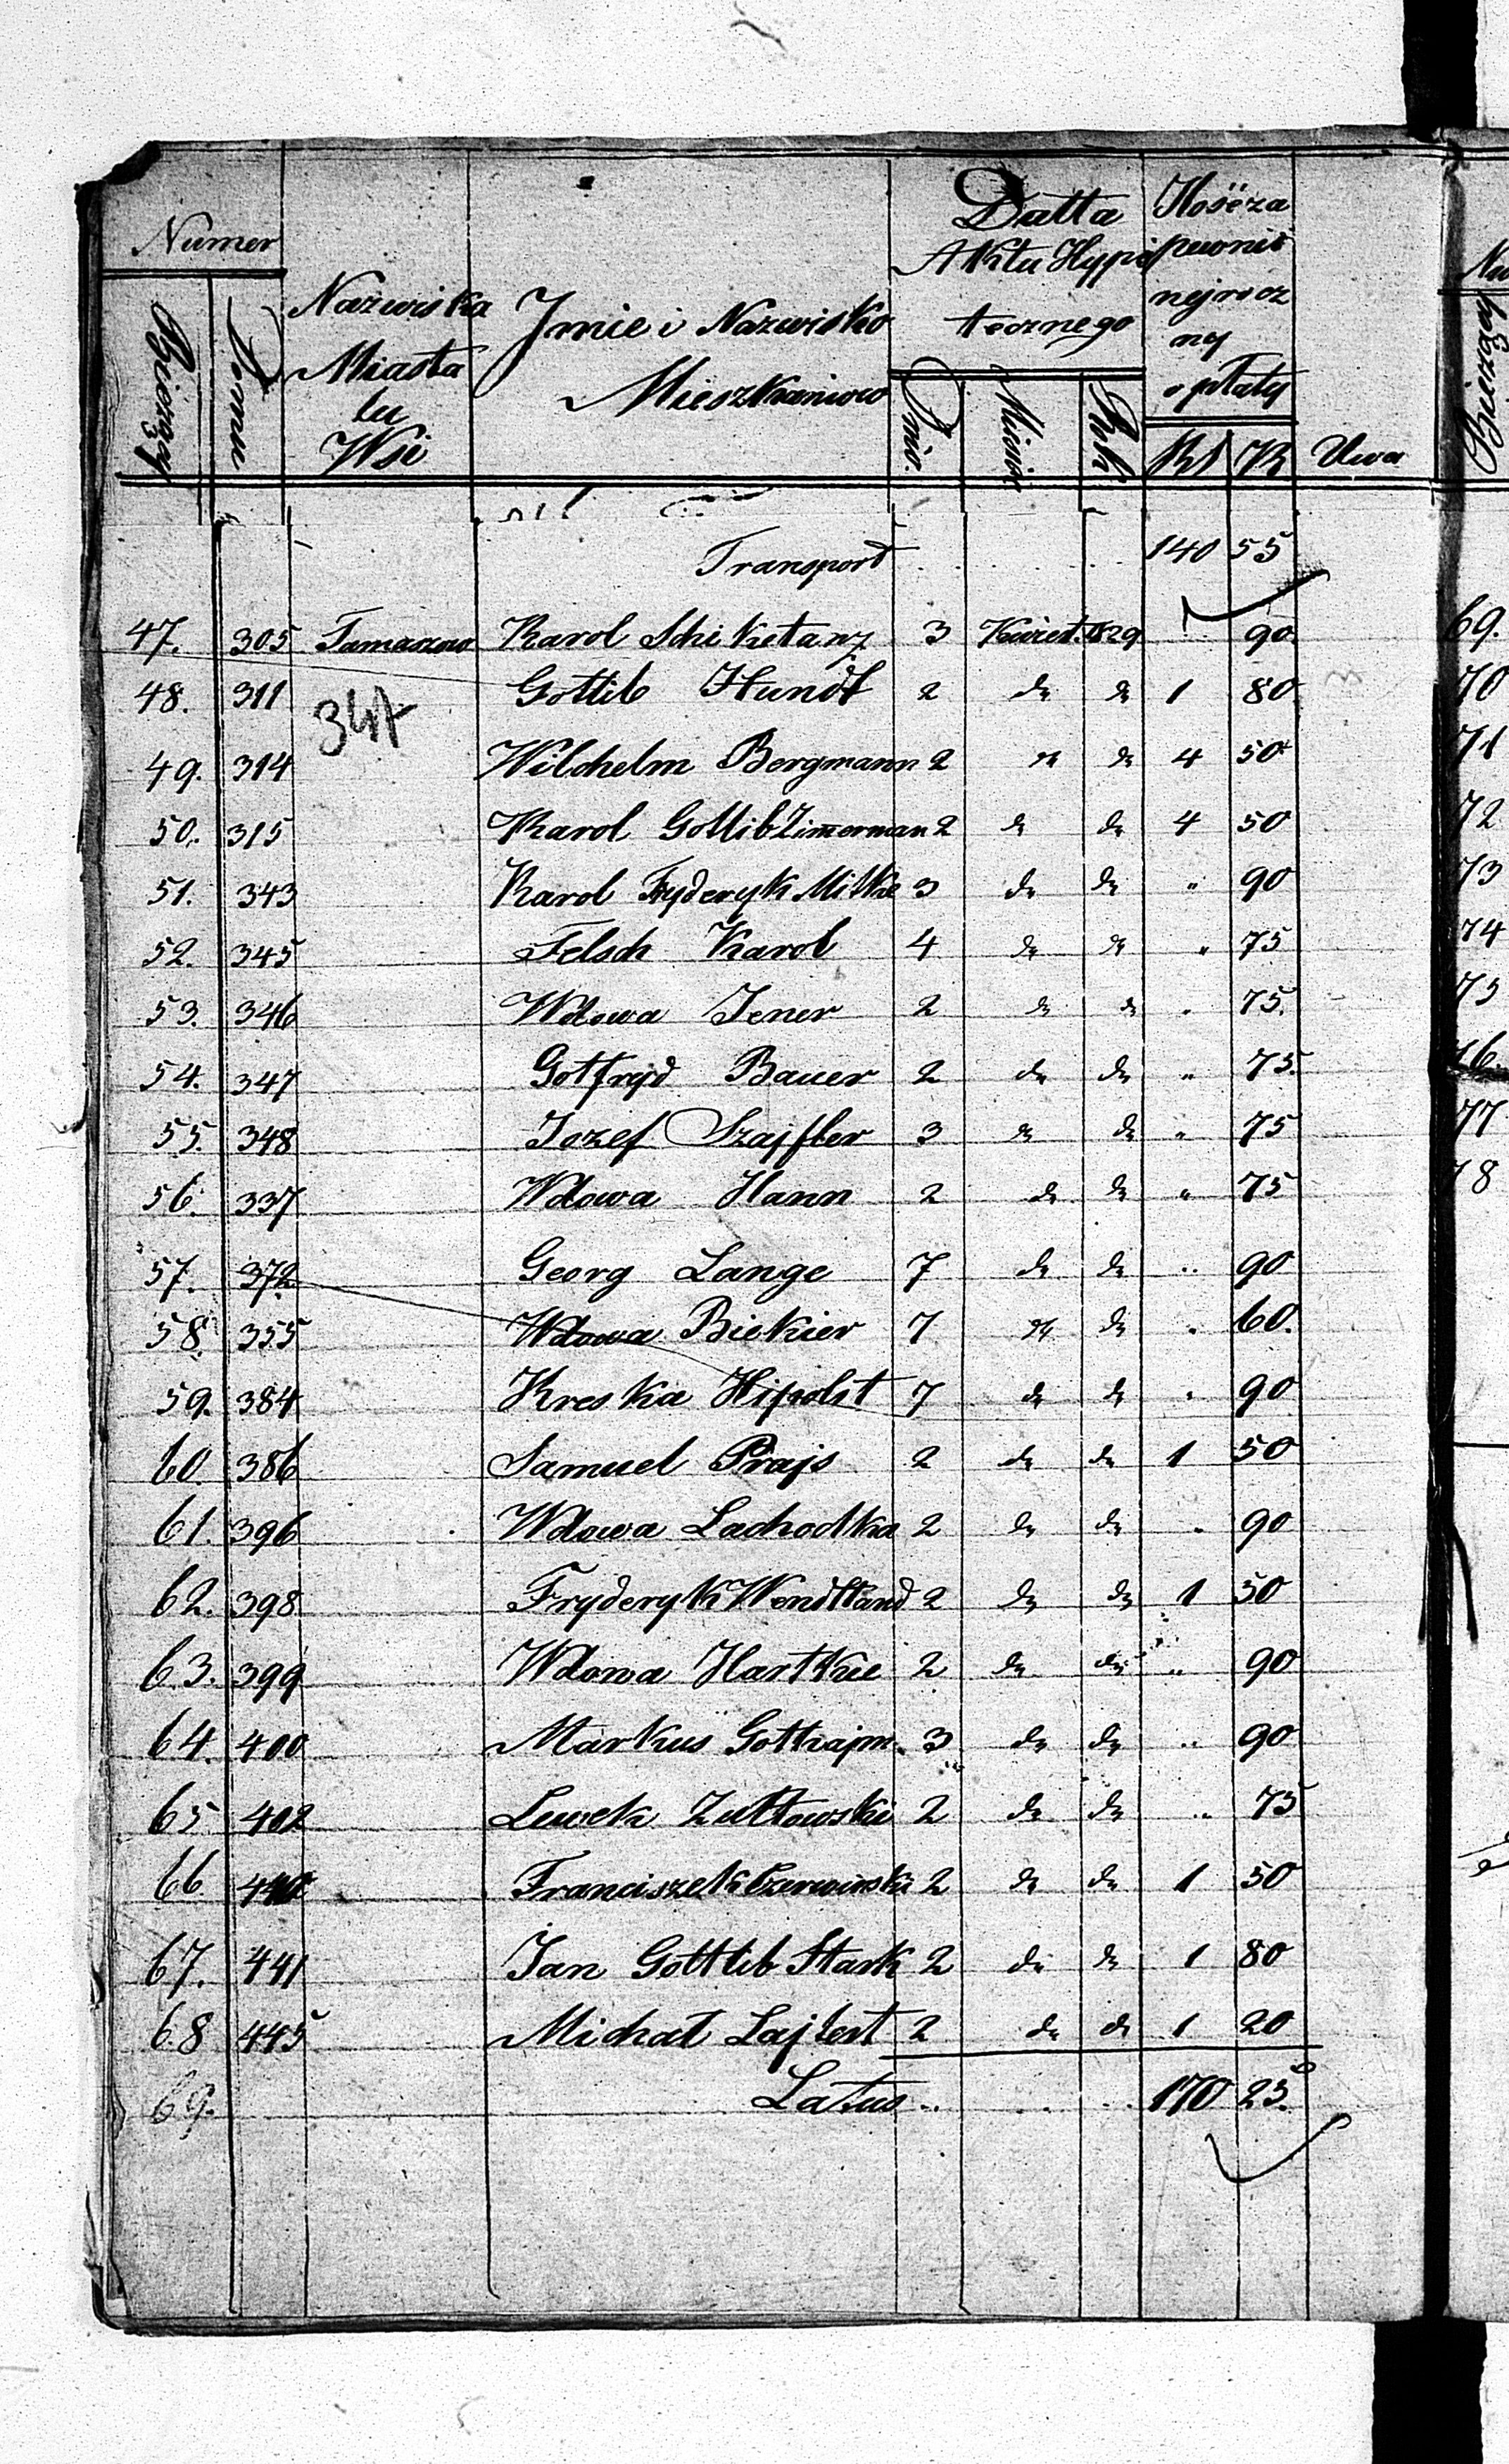 Numer
Bieżący
Domu
Nazwiska
Miasta
lu
Wsi
Jmie i Nazwisko
Mieszkancow
Datta
Aktu Hypo
tecznego
Dnia
Miesiąc
Rok
Ilość za
pewnio
nej rocz
nej
opłaty
Rs K
Uwa
Transport . . . . 140 55
47. 305 Tomaszow Karol Schiketanz 3 Kwiet. 1829 " 90
48. 311 Gottlib Hundt 2 do do 1 80
347
49. 314 Wilchelm Bergmann 2 do do 4 50
50. 315 Karol Gottlib Zimmerman 2 do do 4 50
51. 343 Karol Fryderyk Mitke 3 do do " 90
52. 345 Felsch Karol 4 do do " 75
53. 346 Wdowa Jener 2 do do " 75.
54. 347 Gotfryd Bauer 2 do do " 75.
55. 348 Jozef Szajfler 3 do do " 75
56. 337 Wdowa Hann 2 do do " 75
57. 372 Georg Lange 7 do do " 90
58. 355 Wdowa Biekier 7 do do " 60.
59. 384 Kreska Hipolit 7 do do " 90
60. 386 Samuel Prajs 2 do do 1 50
61. 396 Wdowa Lachodka 2 do do " 90
62. 398 Fryderyk Wendtland 2 do do 1 50
63. 399 Wdowa Hartkie 2 do do " 90
64. 400 Markus Gothajm. 3 do do " 90
65 402 Lewek Zultowski 2 do do " 75
66 440 Franciszek Czerwinski 2 do do 1 50
67. 441 Jan Gottlib Stark 2 do do 1 80
68 445 Michał Lajlert 2 do do 1 20
69. Latus . . . . 170 25.